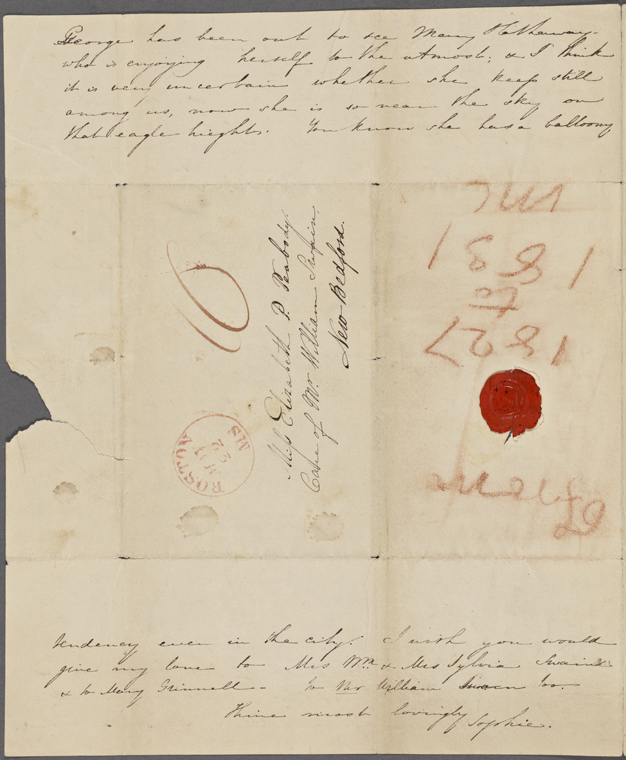 George has been out to see Mary Hathaway.
who is enjoying herself to the utmost; & I think
it is very uncertain whether she keeps still
among us, now she is so near the sky on
that eagle height. You know she has a balloony
6
Miss Elizabeth P. Peabody.
Care of Mr. William Swain
New Bedford.
BOSTON
MS
1831
to
1827
tendency even in the city. I wish you would
give my love to Mrs Wm. & Mrs Sylvia Swain
& to Mary Grinnell — to Mr William Swain too.
Thine most lovingly Sophie.